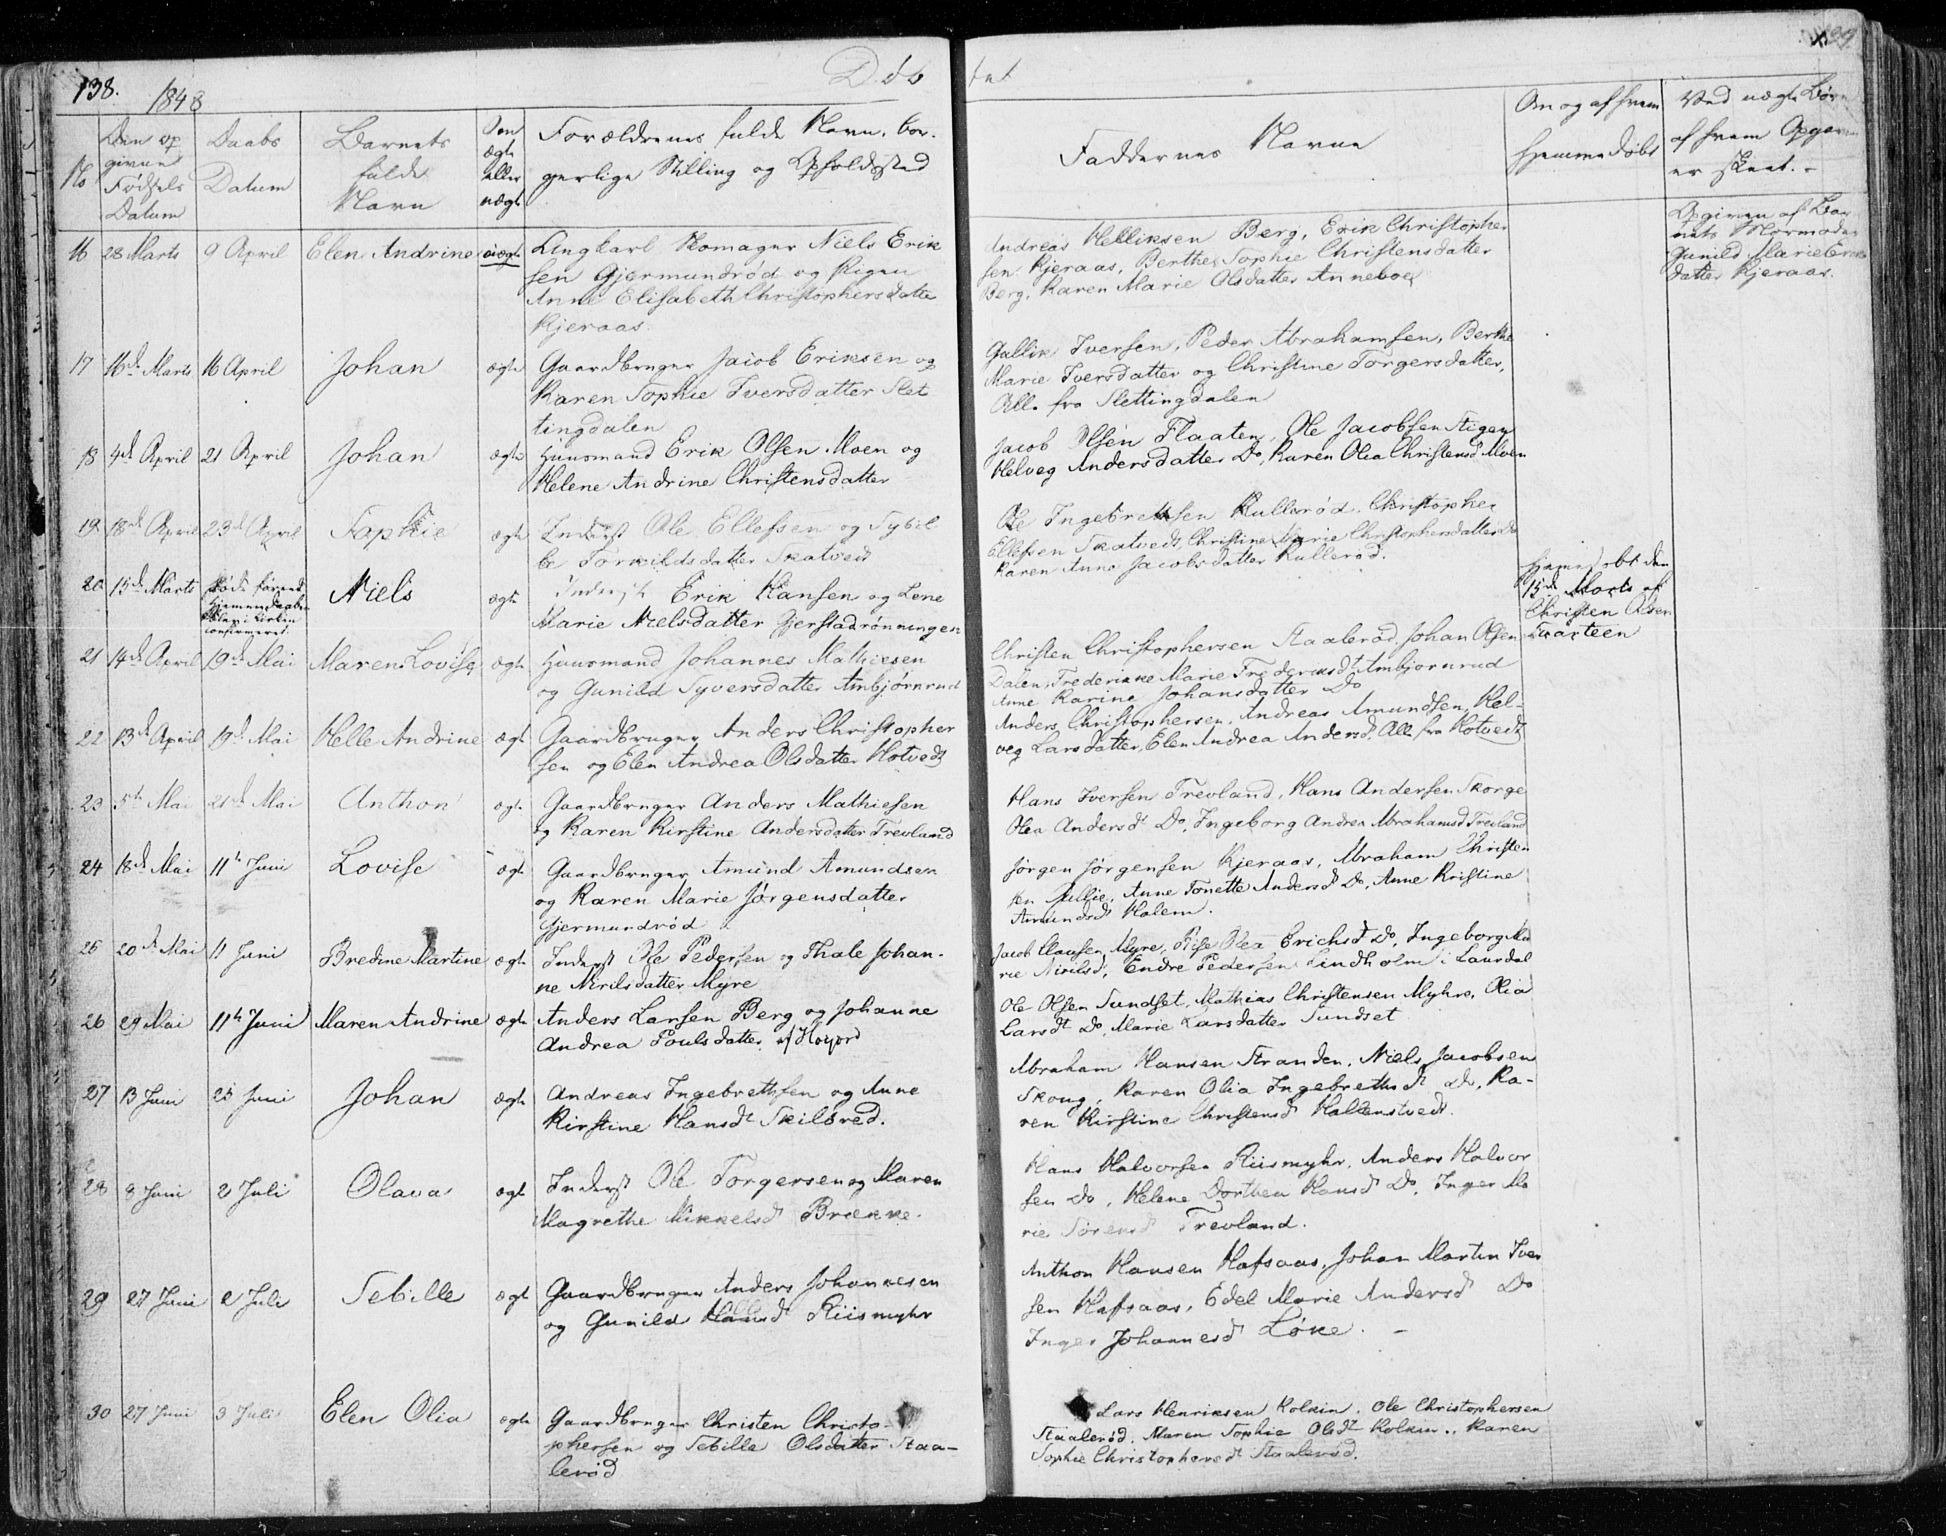 138.
1848
Døb
tet
139
No
Den op
givne
Fødsels
Datum
Daabs
Datum
Barnets
fulde
Navn
Som
ægte
eller
uægte
Forældrenes fulde Navn, bor-
gerlige Stilling og Opholdssted
Faddernes Navne
Om og af hvem
hjemmedøbt
Ved uægte Børn
af hvem Opgaven
er skeet. -
16 28 Marts 9 April Elen Andrine uægte
Ungkarl Skomager Niels Erik
sen Gjermundrød og Pigen
Anne Elisabeth Christophersdatter
Kjeraas.
Andreas Helliksen Berg, Erik Christopher
sen Kjeraas, Berthe Sophie Christensdatter
Berg, Karen Marie Olsdatter Anneboe
Opgiven af Bar
nets Mormoder
Gunild Marie
datter Kjeraas.
17 16de Marts 16 April Johan ægte
Gaardbruger Jacob Eriksen og
Karen Sophie Iversdatter Slet
tingdalen
Gullik Iversen, Peder Abrahamsen, Berthe
Marie Iversdatter og Christine Torgersdatter,
Alle fra Slettingdalen
18 4de April 21 April Johan ægte
Huusmand Erik Olsen Moen og
Helene Andrine Christensdatter
Jacob Olsen Flaaten, Ole Jacobsen Stigen
Helveg Andersdatter Do, Karen Olea Christensd Moen
19 18de April 23de April Sophie ægte
Inderst Ole Ellefsen og Sybil
le Torkildsdatter Skatvedt
Ole Ingebretsen Kullerød. Christopher
Ellefsen Skatvedt, Christine Marie Christophersdatter Do
Karen Anne Jacobsdatter Kullerød.
20 15de Marts
Hjemmedaaben
i Kirken
confirmeret
Niels ægte
Inderst Erik Hansen og Lene
Marie Nielsdatter Gjerstadrønningen
Hjemmedøbt den
15de Marts af
Christen Olsen
Svarteen
21 14de April 19de Mai Maren Lovise ægte
Huusmand Johannes Mathiesen
og Gunild Syversdatter Ambjørnrud
Christen Christophersen Staalerød, Johan Olsen
Dalen, Frederikke Marie Frederiksdt Ambjørnrud
Anne Karine Johansdatter Do
22 13de April 19de Mai Helle Andrine ægte
Gaardbruger Anders Christopher
sen og Elen Andrea Olsdatter Hotvedt
Anders Christophersen, Andreas Amundsen, Hel-
veg Larsdatter, Elen Andrea Andersdt. Alle fra Hotvedt
23 5te Mai 21de Mai Anthon ægte
Gaardbruger Anders Mathiesen
og Karen Kirstine Andersdatter Trevland
Hans Iversen Trevland, Hans Andersen Skorge
Olea Andersdt Do, Ingeborg Andrea Abrahamsd Trevland
24 18de Mai 11te Juni Lovise ægte
Gaardbruger Amund Amundsen
og Karen Marie Jørgensdatter
Gjermundrød
Jørgen Jørgensen Kjeraas, Abraham Christen
sen Jullie, Anne Tonette Andersdt Do, Anne Kristine
Amundsdt Holem.
25 20de Mai 11 Juni Bredine Martine ægte
Inderst Ole Pedersen og Thale Johan-
ne Nirilsdatter Myre
Jacob Clausen Myre, Else Olea Erichsdt Do, Ingeborg Ma
rie Nirilsdt, Endre Pedersen Lindholm i Laurdal
26 29 Mai 11te Juni Maren Andrine ægte
Anders Larsen Berg og Johanne
Andrea Poulsdatter af Høyjord
Ole Olsen Sundset, Mathias Christensen Myhre, Olia
Larsdt Do, Marie Larsdatter Sundset
27 13 Juni 25 Juni Johan ægte
Andreas Ingebrethsen og Anne
Kirstine Hansdt Skilbred.
Abraham Hansen Stranden, Niels Jacobsen
Skoug, Karen Olia Ingebrethsdt Do, Ka-
ren Kirstine Christensdt Hallenstvedt.
28 8 Juni 2 Juli Olava ægte
Inderst Ole Torgersen og Maren
Magrethe Mikkelsdt Brekke.
Hans Halvorsen Riismyhr, Anders Halvor
sen Do, Helene Dorthea Hansdt Do, Inger Ma
rie Sørensdt Trevland.
29 27 Juni 2 Juli Sebille ægte
Gaardbruger Anders Johannesen
og Gunild Hansdt Riismyhr
Anthon Hansen Hafsaas, Johan Martin Iver
sen Hafsaas, Edel Marie Andersdt Do
Inger Johannesdt Løke. -
30 27 Juni 3 Juli Elen Olia ægte
Gaardbruger Christen Christo-
phersen og Sebille Olsdatter Staa-
lerød
Lars Henriksen Kolkin. Ole Christophersen
Staalerød. Maren Sophie Olsdt Kolkin., Karen
Sophie Christophersdt Staalerød.